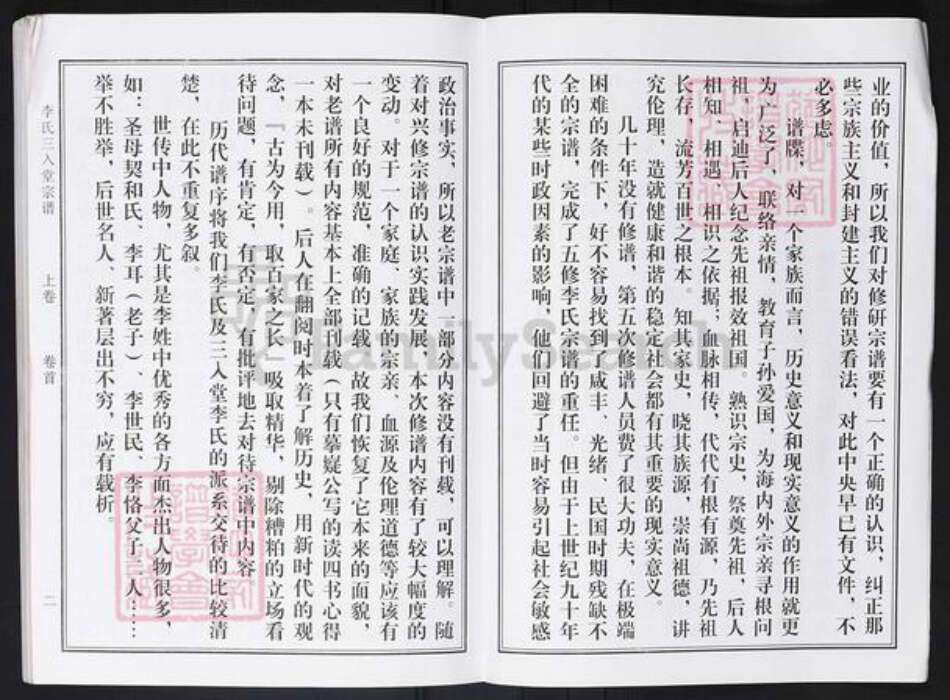 业的价值，所以我们对修研宗谱要有一个正确的认识，纠正那
些宗族主义和封建主义的错误看法，对此中央早已有文件，不
必多虑。
谱牒，对一个家族而言，历史意义和现实意义的作用就更
为广泛了，联络亲情，教育子孙爱国，为海内外宗亲寻根问
祖，启迪后人纪念先祖报效祖国。熟识宗史，祭奠先祖，后人
相知、相遇、相识之依据，血脉相传，代代有根有源，乃先祖
长存，流芳百世之根本。知其家史，晓其族源，崇尚祖德，讲
究伦理，造就健康和谐的稳定社会都有其重要的现实意义。
几十年没有修谱，第五次修谱人员费了很大功夫，在极端
困难的条件下，好不容易找到了咸丰、光绪、民国时期残缺不
全的宗谱，完成了五修李氏宗谱的重任。但由于上世纪九十年
代的某些时政因素的影响，他们回避了当时容易引起社会敏感
政治事实，所以老宗谱中一部分内容没有刊载，可以理解。随
着对兴修宗谱的认识实践发展，本次修谱内容有了较大幅度的
变动。对于一个家庭、家族的宗亲、血源及伦理道德等应该有
一个良好的规范，准确的记载，故我们恢复了它本来的面貌，
对老谱所有内容基本上全部刊载（只有摹疑公写的读四书心得
一本未刊载）。后人在翻阅时本着了解历史，用新时代的观
念，「古为今用，取百家之长」吸取精华，剔除糟粕的立场看
待问题，有肯定，有否定，有批评地去对待宗谱中内容。
历代谱序将我们李氏及三入堂李氏的派系交待的比较清
楚，在此不重复多叙。
世传中人物，尤其是李姓中优秀的各方面杰出人物很多，
如：圣母契和氏、李耳（老子）、李世民、李恪父子三人……
举不胜举，后世名人、新著层出不穷，应有载析。
李氏三入堂宗谱 上卷 卷首 二
FamilySearch